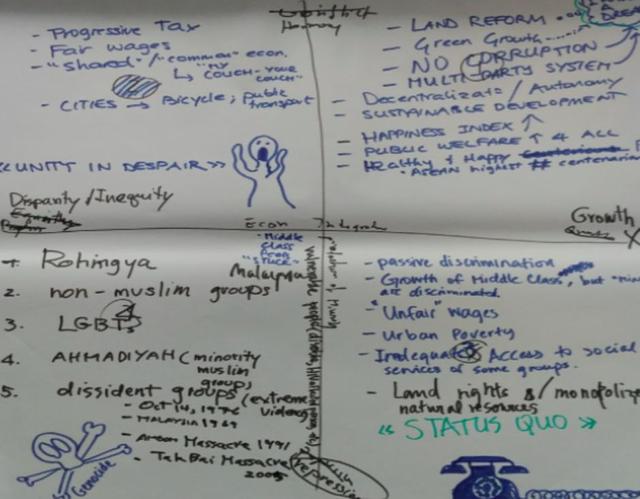 - Progressive Tax
- Fair wages
- "Shared"/"common" econ.
↳ "MY COUCH-YOUR COUCH"
- CITIES → Bicycle; public transport
<<UNITY IN DESPAIR>>
Disparity/Inequity
Harmony
- LAND REFORM
- Green Growth
- NO CORRUPTION
- MULTI PARTY SYSTEM
- Decentralizat / Autonomy
- SUSTAINABLE DEVELOPMENT
- HAPPINESS INDEX ↑
- PUBLIC WELFARE ↑ 4 ALL
- Healthy & Happy
• ASEAN highest # centenarian
Growth
Econ
1. Rohingya
2. non-muslim groups
3. LGBTs
4. AHMADIYAH (minority
muslim
groups)
5. dissident groups (extreme
videos)
- Oct 14, 1976
- MALAYSIA 1969
- Massacre 1991
- Tak Bai Massacre
2005
Genocide
- Middle
Class
"STUCK"
- passive discrimination
- Growth of Middle Class, but
are discriminated.
- "Unfair" Wages
- Urban Poverty
- Inadequate Access to social
services of some groups.
- Land rights &/monopolize
natural resources
<<STATUS QUO>>